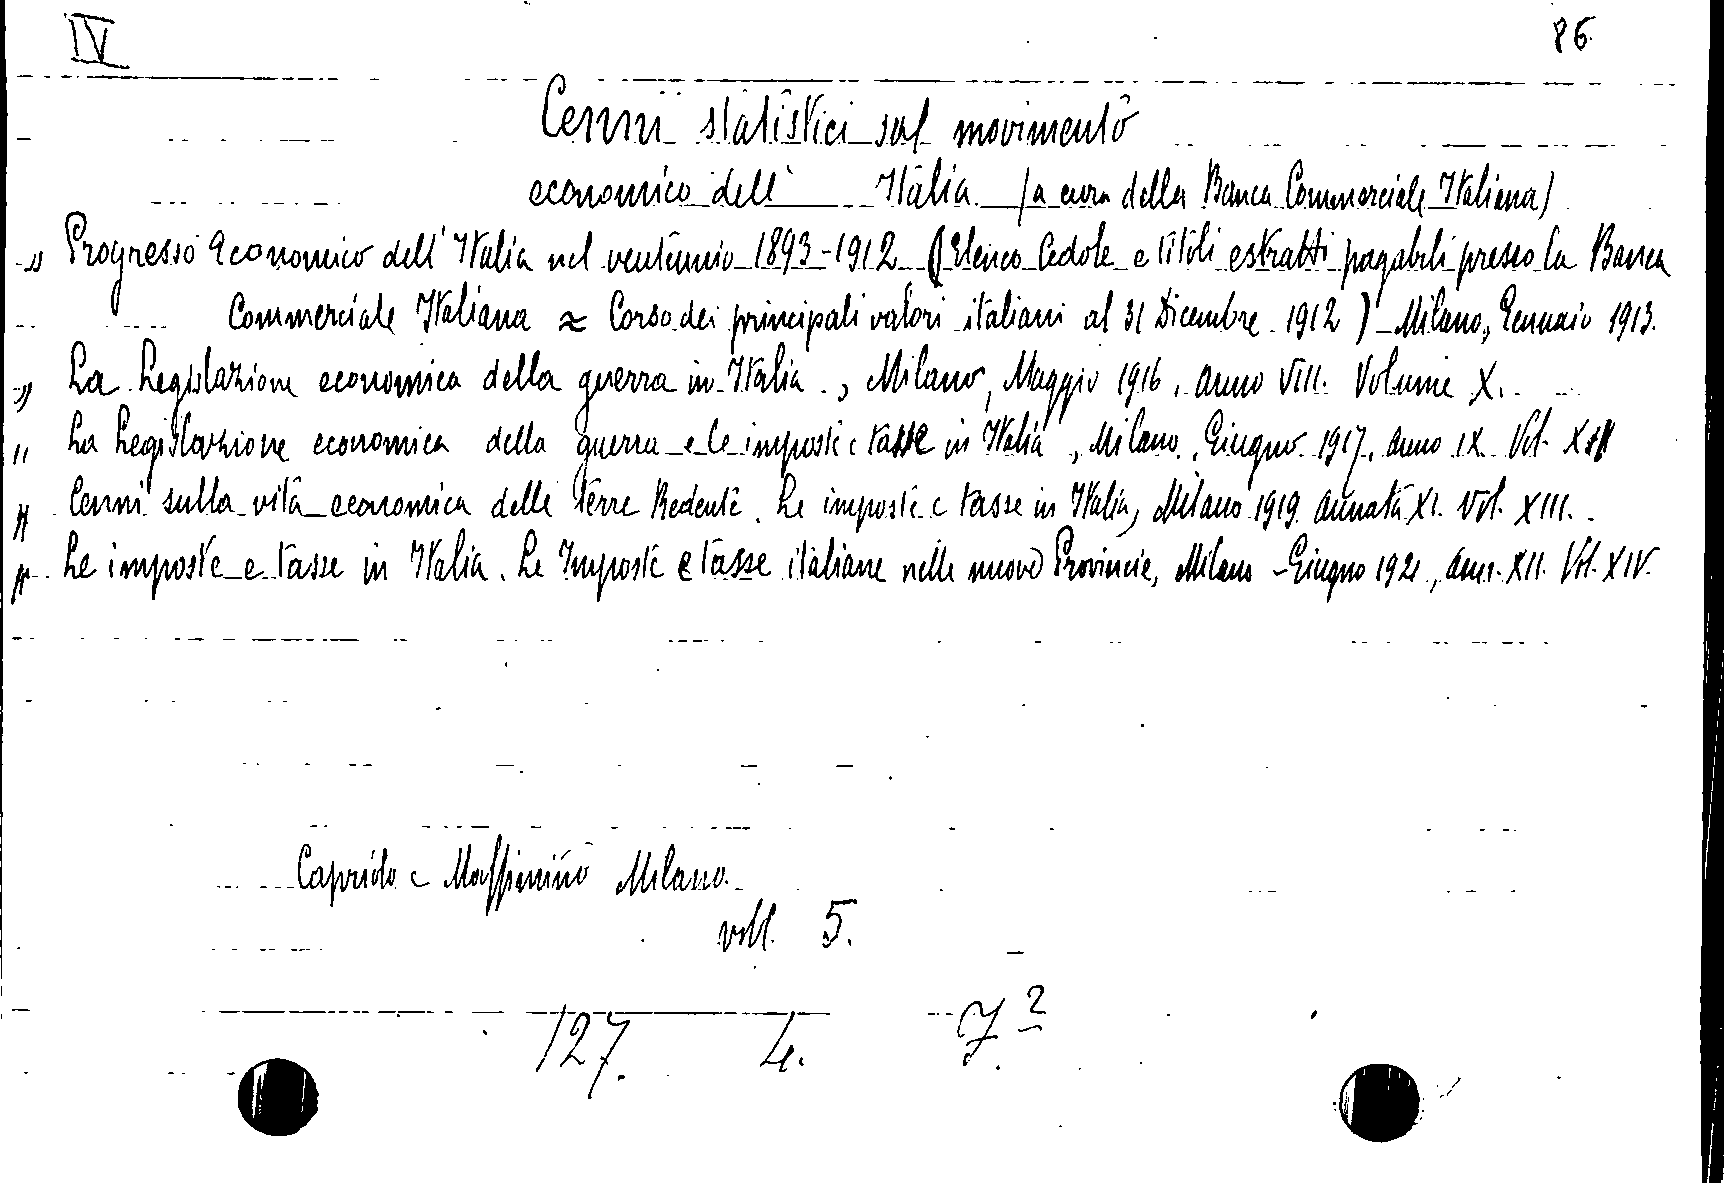 IV
86.
Cenni statistici sul movimento
economico dell' Italia (a cura della Banca Commerciale Italiana)
" Progresso Economico dell' Italia nel ventennio 1893-1912 (Elenco Cedole e titoli estratti pagabili presso la Banca
Commerciale Italiana ≈ Corso dei principali valori italiani al 31 Dicembre 1912) - Milano, Gennaio 1913.
" La Legislazione economica della guerra in Italia., Milano, Maggio 1916. Anno VIII. Volume X.
" La Legislazione economica della guerra e le imposte e tasse in Italia, Milano. Giugno 1917. Anno IX Vol. XII
" Cenni sulla vita economica delle Terre Redente. Le imposte e tasse in Italia, Milano 1919. Annata XI. Vol. XIII.
" Le imposte e tasse in Italia. Le Imposte e tasse italiane nelle nuove Provincie, Milano - Giugno 1921, Ann. XII. Vol. XIV.
Capriolo e Massimino Milano.
voll. 5.
127. 4. 7 2